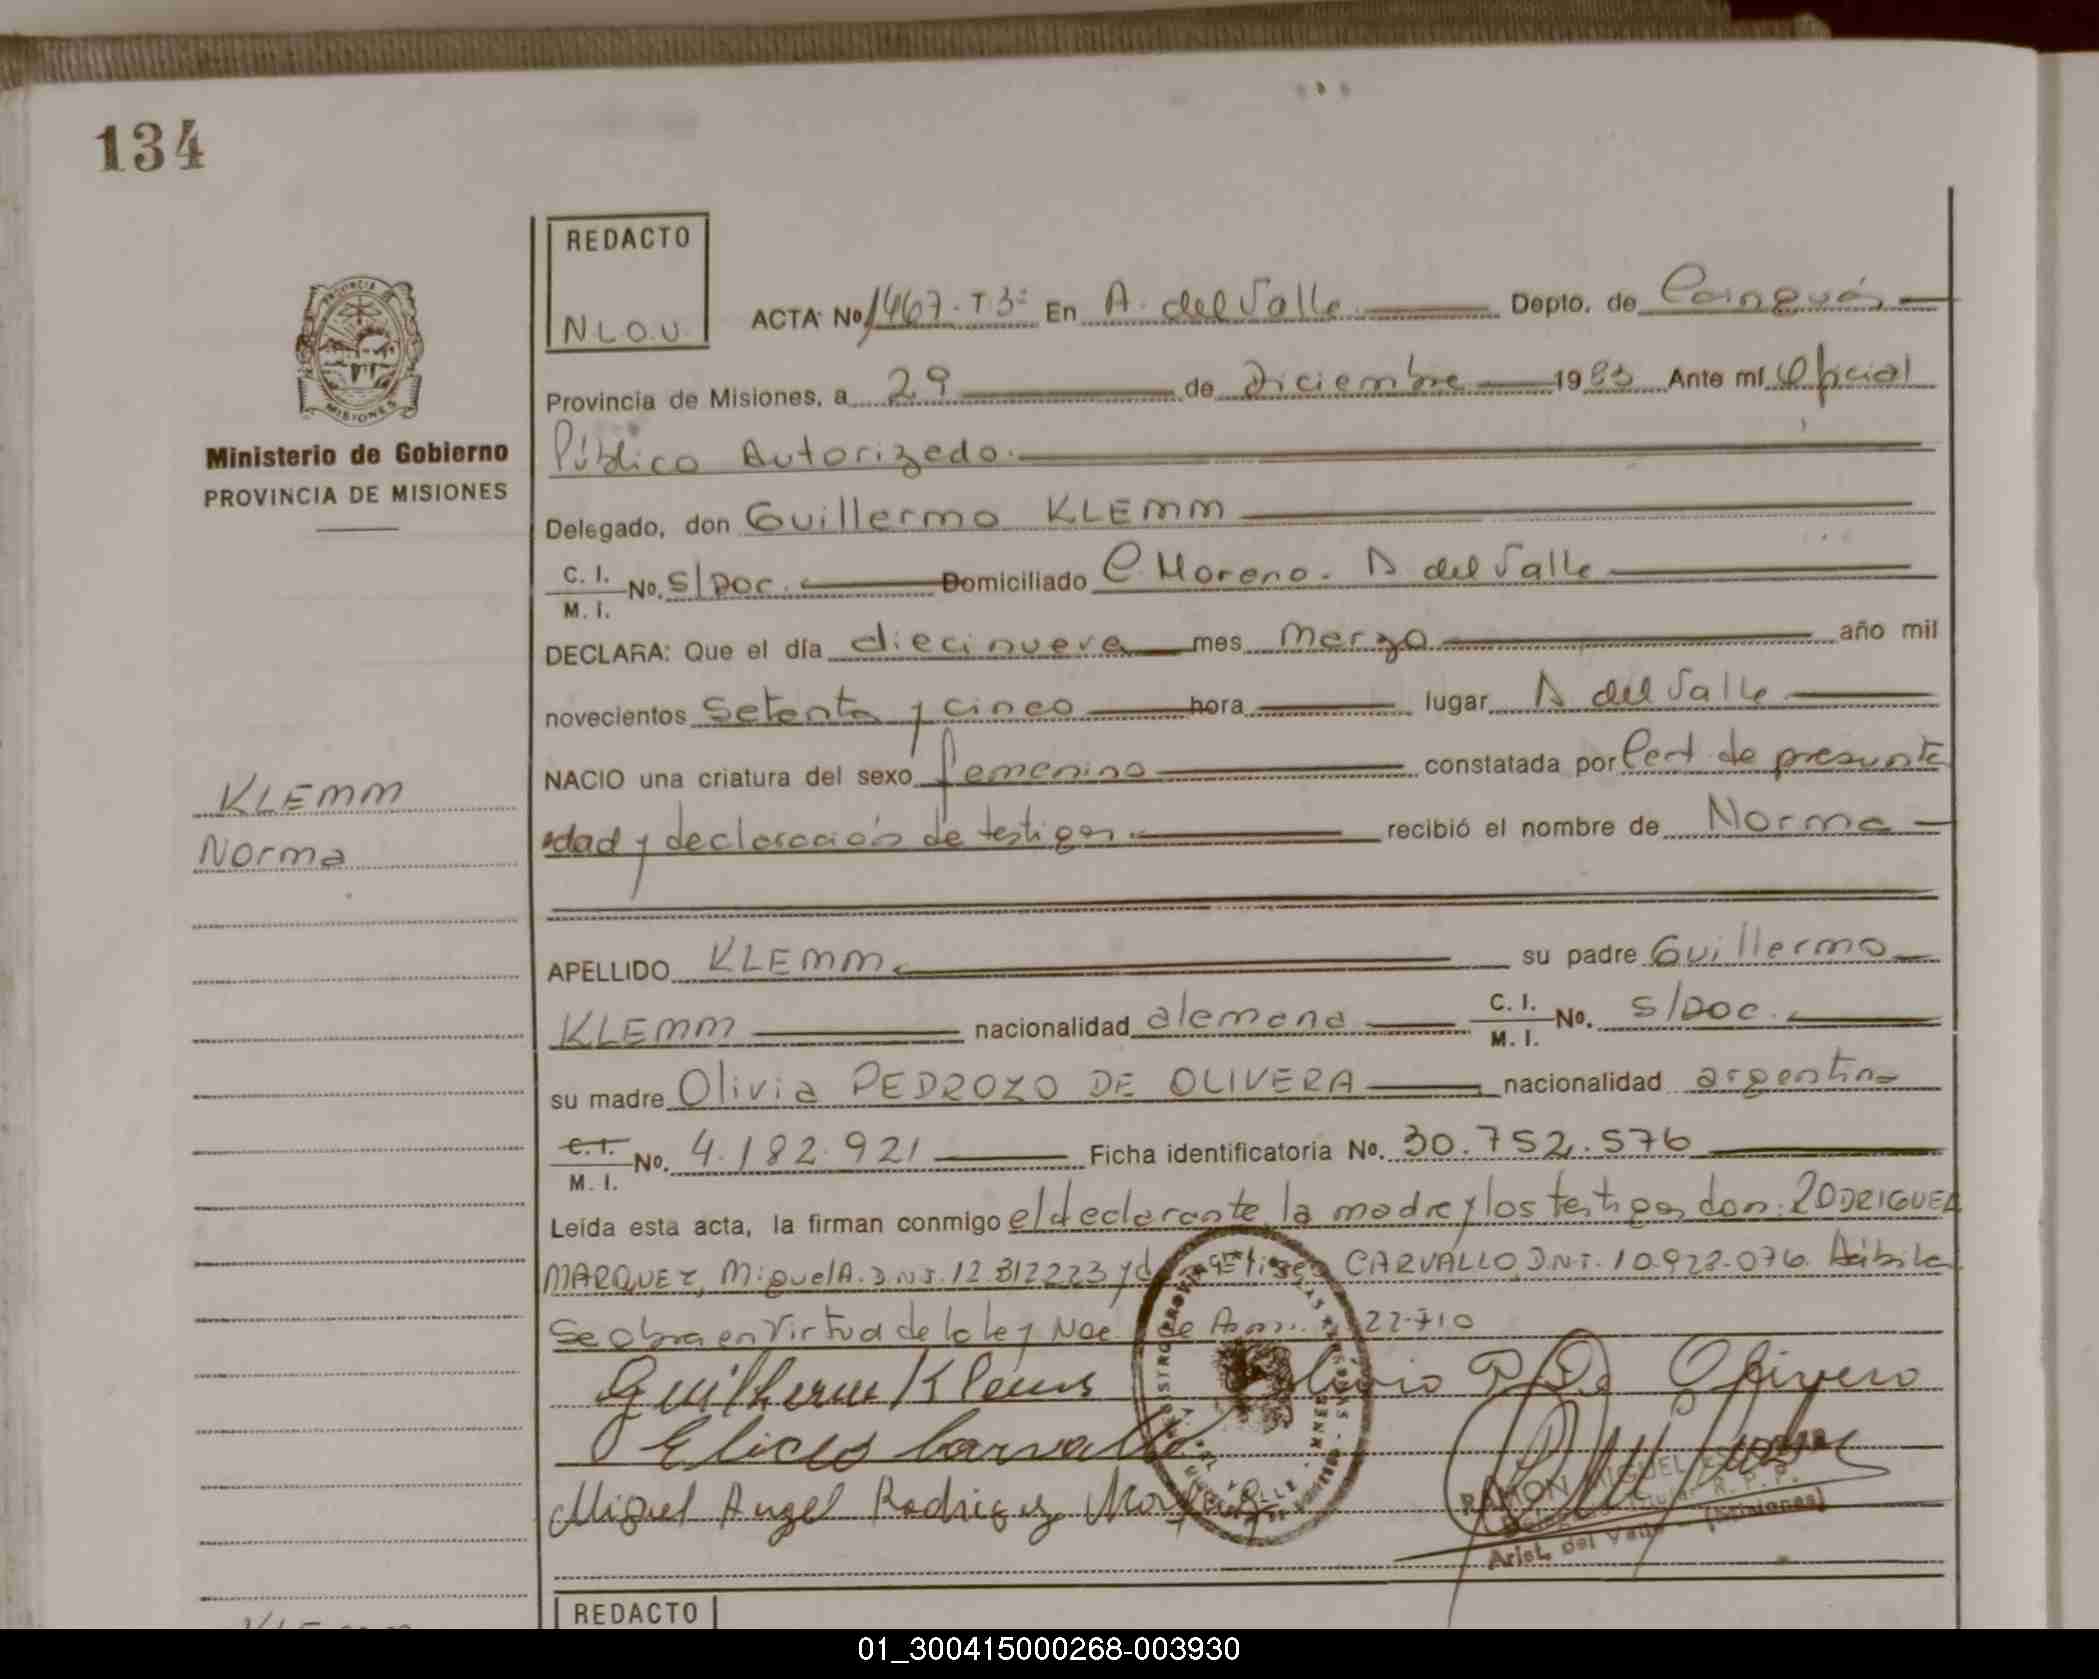 134
REDACTO
N.L.O.U.
ACTA No 1467-T3º En A. del Valle Depto. de Cainguás
Provincia de Misiones, a 29 de Diciembre 1983 Ante mí Oficial
Público Autorizado.
Delegado, don Guillermo KLEMM
C. I. M. I. No. S/DOC. Domiciliado C. Moreno - A del Valle
DECLARA: Que el día diecinueve mes Marzo año mil
novecientos Setenta y cinco hora lugar A del Valle
NACIO una criatura del sexo femenino constatada por Cert. de presunta
edad y declaración de testigos. recibió el nombre de Norma
APELLIDO KLEMM su padre Guillermo
KLEMM nacionalidad alemana C. I. M. I. No. S/DOC.
su madre Olivia PEDROZO DE OLIVERA nacionalidad argentina
C. I. M. I. No. 4.182.921 Ficha identificatoria No. 30.752.576
Leída esta acta, la firman conmigo el declarante, la madre y los testigos don: RODRIGUEZ
MARQUEZ, Miguel A. D.N.I. 12.812223 y CARVALLO D.N.I. 10.922.076.
Se obra en Virtud de la ley Nac. de 22.710
Miguel Angel Rodriguez
RAMON MIGUEL
Arist. del Valle - (Misiones)
PROVINCIA DE
MISIONES
Ministerio de Gobierno
PROVINCIA DE MISIONES
KLEMM
Norma
REDACTO
01_300415000268-003930